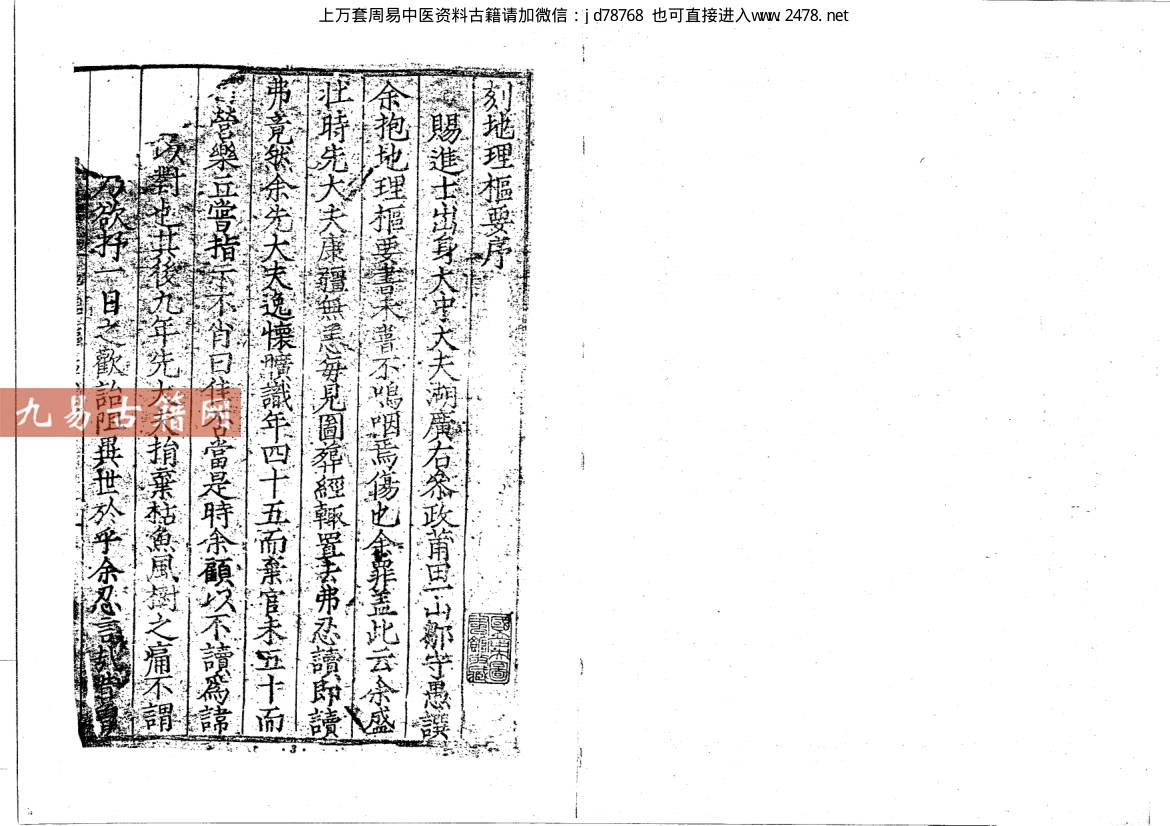 上万套周易中医资料古籍请加微信：jd78768 也可直接进入www.2478.net
刻地理樞要序
賜進士出身大中大夫湖廣右叅政莆田一山鄒守愚譔
余抱地理樞要書未嘗不鳴咽焉傷也余罪盖此云余盛
壯時先大夫康疆無恙每見圖葬經輙置去弗忍讀即讀
弗竟然余先大夫逸懷曠識年四十五而棄官未五十而
營樂丘嘗指示不肖曰佳否當是時余顧以不讀爲諱
以對也其後九年先大夫捐棄枯魚風樹之痛不謂
乃欲抒一日之歡詒阻異世於乎余忍言哉
九易古籍网
國立北平圖書館收藏
3